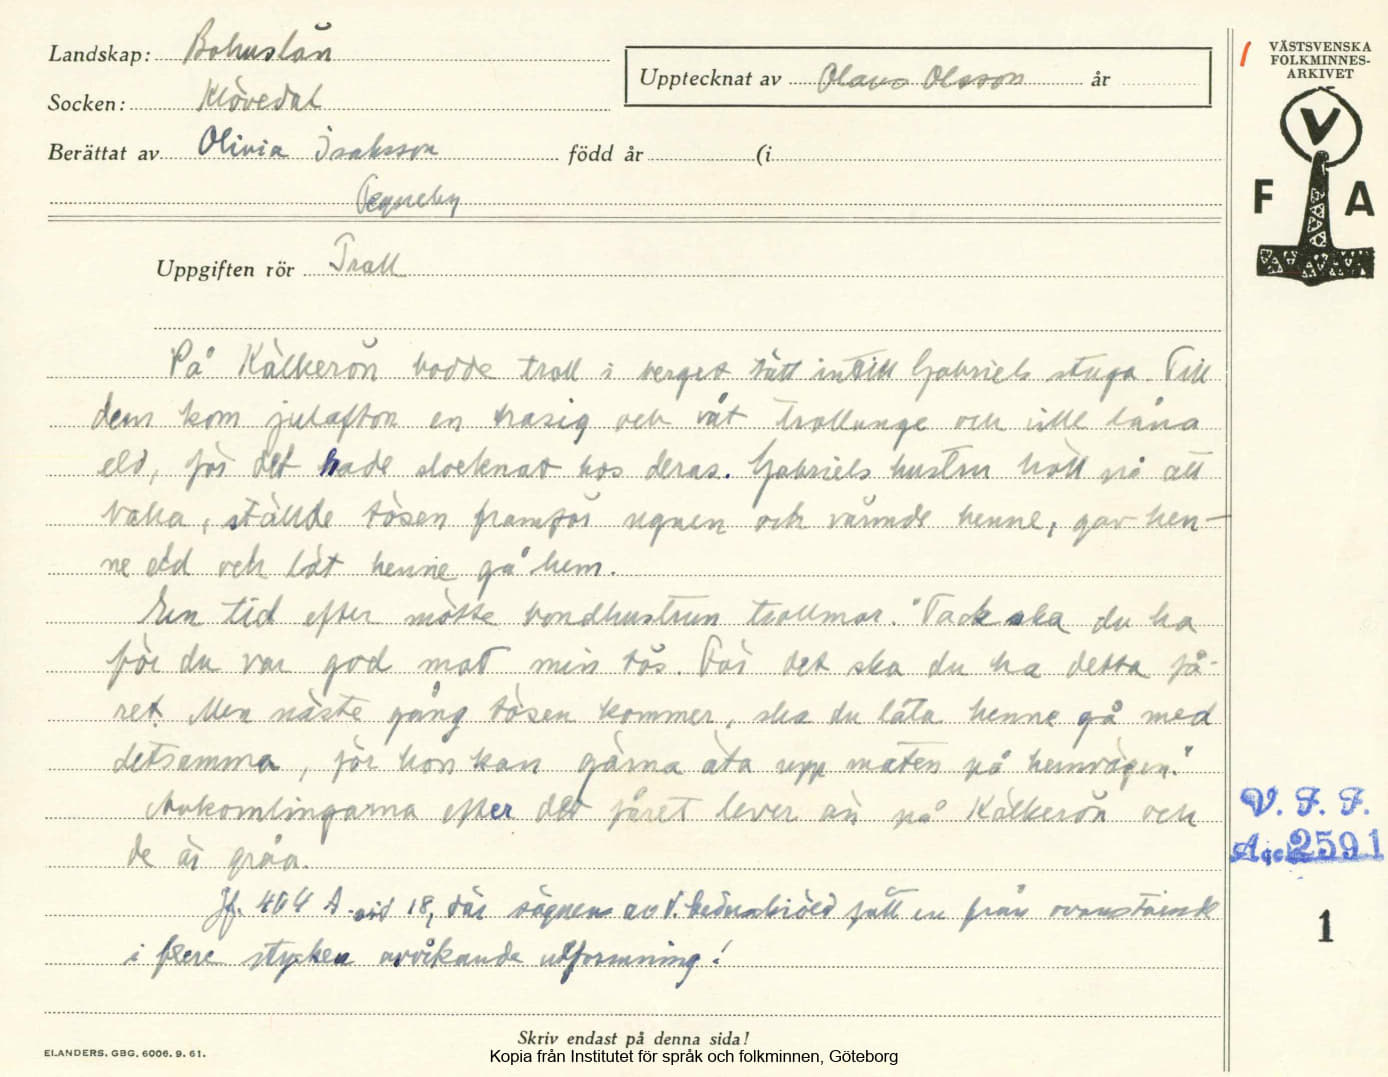 Landskap: Bohuslän
Socken: Klövedal
Berättat av Olivia Isaksson född år (i
Upptecknat av Olaus Olsson år
VÄSTSVENSKA
FOLKMINNES-
ARKIVET
V
F A
Uppgiften rör Troll
På Kälkerön bodde troll i berget tätt intill Gabriels stuga. Till
dem kom julafton en trasig och våt trollunge och ville låna
eld, för det hade slocknat hos deras. Gabriels hustru höll på att
baka, ställde tösen framför ugnen och värmde henne, gav hen-
ne eld och lät henne gå hem.
En tid efter mötte bondhustrun trollmor. "Tack ska du ha
för du var god mot min tös. För det ska du ha detta få-
ret. Men näste gång tösen kommer, ska du låta henne gå med
detsamma, för hon kan gärna äta upp maten på hemvägen."
Avkomlingarna efter det fåret lever än på Kälkerön och
de är gråa.
Jf. 464 A sid 18, där sägnen av fått en från ovanstående
i flere stycken avvikande utformning!
V. F. F.
Acc 2591
1
Skriv endast på denna sida!
ELANDERS. GBG. 6006. 9. 61.
Kopia från Institutet för språk och folkminnen, Göteborg